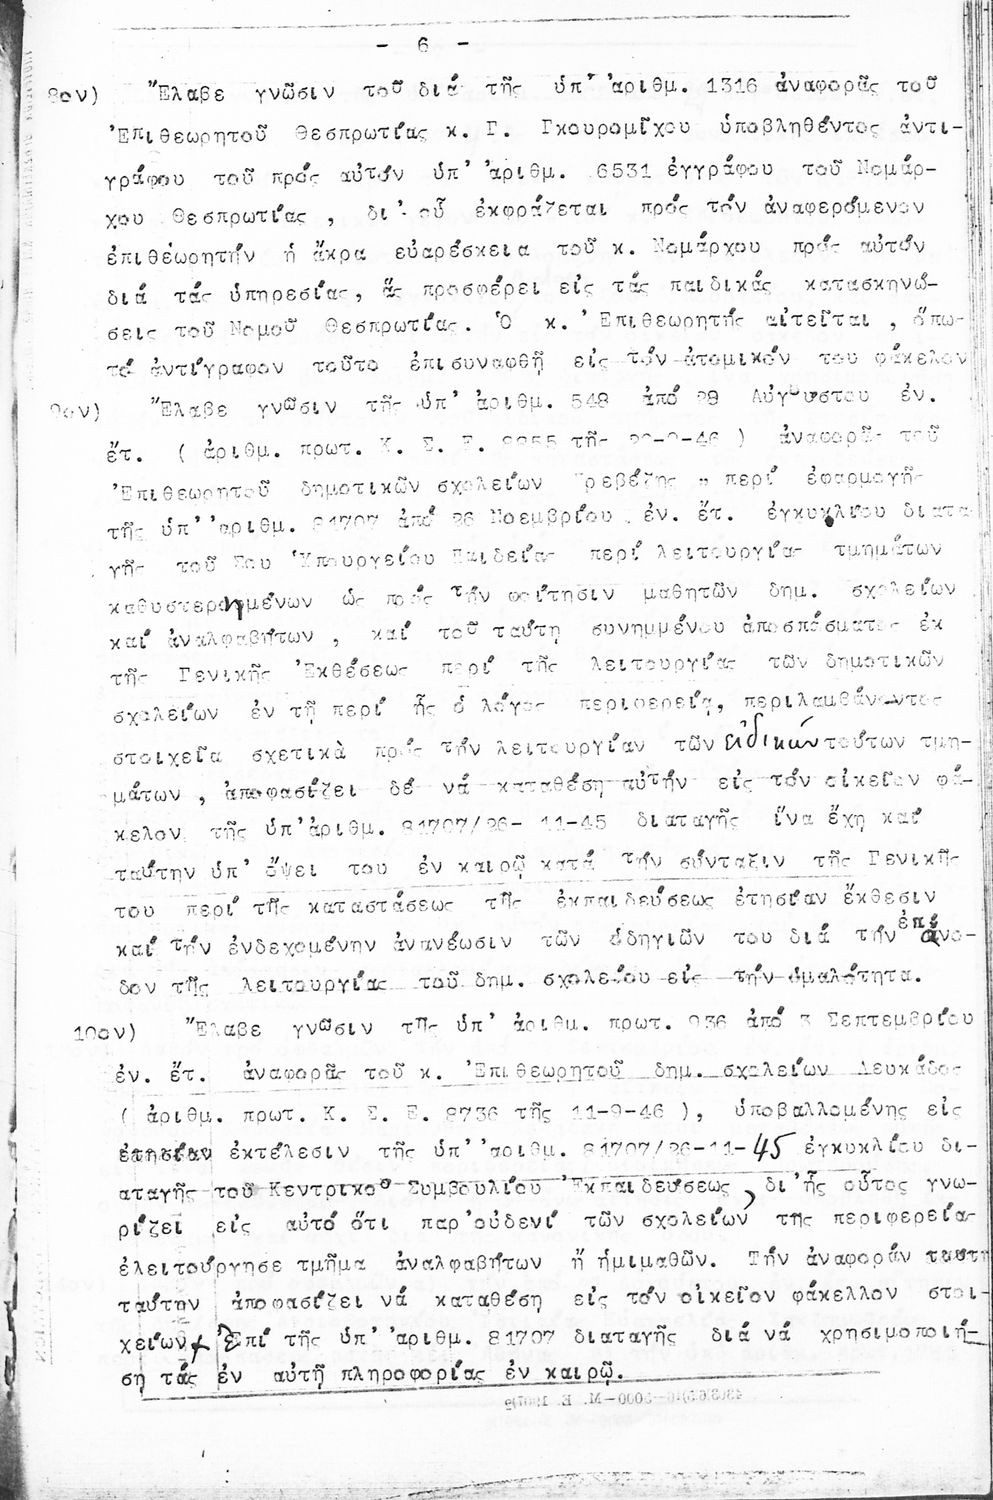 - 6 -
8ον) Ἔλαβε γνῶσιν τοῦ διά τῆς ὑπ' ἀριθμ. 1316 ἀναφορᾶς τοῦ
Ἐπιθεωρητοῦ Θεσπρωτίας κ. Γ. Γκουρομίχου ὑποβληθέντος ἀντι-
γράφου τοῦ πρός αὐτόν ὑπ' ἀριθμ. 6531 ἐγγράφου τοῦ Νομάρ-
χου Θεσπρωτίας , δι' οὗ ἐκφράζεται πρός τόν ἀναφερόμενον
ἐπιθεωρητήν ἡ ἄκρα εὐαρέσκεια τοῦ κ. Νομάρχου πρός αὐτόν
διά τάς ὑπηρεσίας, ἅς προσφέρει εἰς τάς παιδικάς κατασκηνώ-
σεις τοῦ Νομοῦ Θεσπρωτίας. Ὁ κ. Ἐπιθεωρητής αἰτεῖται , ὅπω
τό ἀντίγραφον τοῦτο ἐπισυναφθῇ εἰς τόν ἀτομικόν του φάκελον
9ον) Ἔλαβε γνῶσιν τῆς ὑπ' ἀριθμ. 548 ἀπό 29 Αὐγούστου ἐν.
ἔτ. ( ἀριθμ. πρωτ. Κ. Σ. Ε. τῆς ) ἀναφορᾶς τοῦ
Ἐπιθεωρητοῦ δημοτικῶν σχολείων Πρεβέζης " περί ἐφαρμογῆς
τῆς ὑπ' ἀριθμ. 81707 ἀπό 26 Νοεμβρίου ἐν. ἔτ. ἐγκυκλίου διατα
γῆς τοῦ Σου Ὑπουργείου Παιδείας περί λειτουργίας τμημάτων
καθυστερημένων ὡς πρός τήν φοίτησιν μαθητῶν δημ. σχολείων
καί ἀναλφαβήτων , καί τοῦ ταύτη συνημμένου ἀποσπάσματος ἐκ
τῆς Γενικῆς Ἐκθέσεως περί τῆς λειτουργίας τῶν δημοτικῶν
σχολείων ἐν τῇ περί ἧς ὁ λόγος περιφερείᾳ, περιλαμβάνοντος
στοιχεῖα σχετικὰ πρός τήν λειτουργίαν τῶν εἰδικῶν τούτων τμη-
μάτων , ἀποφασίζει δέ νά καταθέση αὐτήν εἰς τόν οἰκεῖον φά-
κελον τῆς ὑπ' ἀριθμ. 81707/26- 11-45 διαταγῆς ἵνα ἔχη καί
ταύτην ὑπ' ὄψει του ἐν καιρῷ κατά τήν σύνταξιν τῆς Γενικῆς
του περί τῆς καταστάσεως τῆς ἐκπαιδεύσεως ἐτησίαν ἔκθεσιν
καί τήν ἐνδεχομένην ἀνανέωσιν τῶν ὁδηγιῶν του διά τήν ἐπάνο-
δον τῆς λειτουργίας τοῦ δημ. σχολείου εἰς τήν ὁμαλότητα.
10ον) Ἔλαβε γνῶσιν τῆς ὑπ' ἀριθμ. πρωτ. 936 ἀπό 3 Σεπτεμβρίου
ἐν. ἔτ. ἀναφορᾶς τοῦ κ. Ἐπιθεωρητοῦ δημ. σχολείων Λευκάδος
( ἀριθμ. πρωτ. Κ. Σ. Ε. 8736 τῆς 11-9-46 ), ὑποβαλλομένης εἰς
ἐκτέλεσιν τῆς ὑπ' ἀριθμ. 81707/26-11-45 ἐγκυκλίου δι-
αταγῆς τοῦ Κεντρικοῦ Συμβουλίου Ἐκπαιδεύσεως, δι' ἧς οὗτος γνω-
ρίζει εἰς αὐτό ὅτι παρ' οὐδενί τῶν σχολείων τῆς περιφερείας
ἐλειτούργησε τμῆμα ἀναλφαβήτων ἤ ἡμιμαθῶν. Τήν ἀναφοράν ταύτη
ταύτην ἀποφασίζει νά καταθέση εἰς τόν οἰκεῖον φάκελλον στοι-
χείων Ἐπί τῆς ὑπ' ἀριθμ. 81707 διαταγῆς διά νά χρησιμοποιή-
ση τάς ἐν αὐτῇ πληροφορίας ἐν καιρῷ.